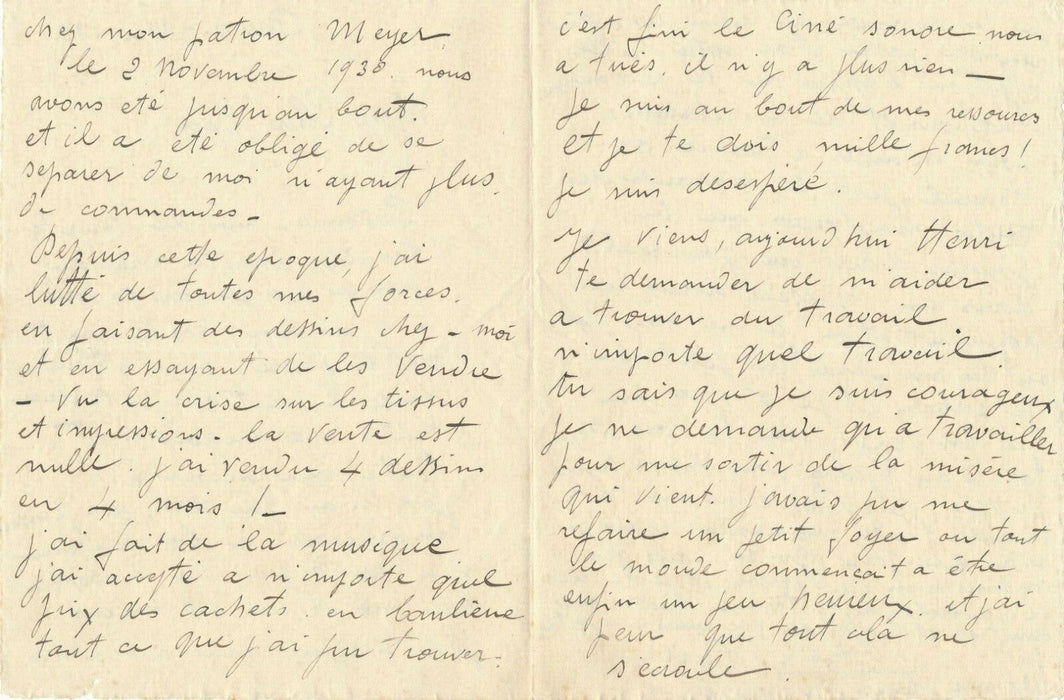 chez mon patron Meyer
le 2 Novembre 1930. nous
avons été jusqu'au bout.
et il a été obligé de se
separer de moi n'ayant plus
de commandes -
Depuis cette epoque, j'ai
lutté de toutes mes forces.
en faisant des dessins chez - moi
et en essayant de les vendre
- Vu la crise sur les tissus
et impressions - la vente est
nulle. j'ai vendu 4 dessins
en 4 mois ! -
j'ai fait de la musique
j'ai accepté a n'importe quel
prix des cachets. en banlieue
tout ce que j'ai pu trouver.
c'est fini le Ciné sonore nous
a tués. il n'y a plus rien -
je suis au bout de mes ressources
et je te dois mille francs !
je suis deseperé.
Je viens, aujourd'hui Henri
te demander de m'aider
a trouver du travail
n'importe quel travail
tu sais que je suis courageux
je ne demande qu'a travailler
pour me sortir de la misére
qui vient. j'avais pu me
refaire un petit foyer ou tout
le monde commencait a être
enfin un peu heureux. et j'ai
peur que tout cela ne
s'ecroule.